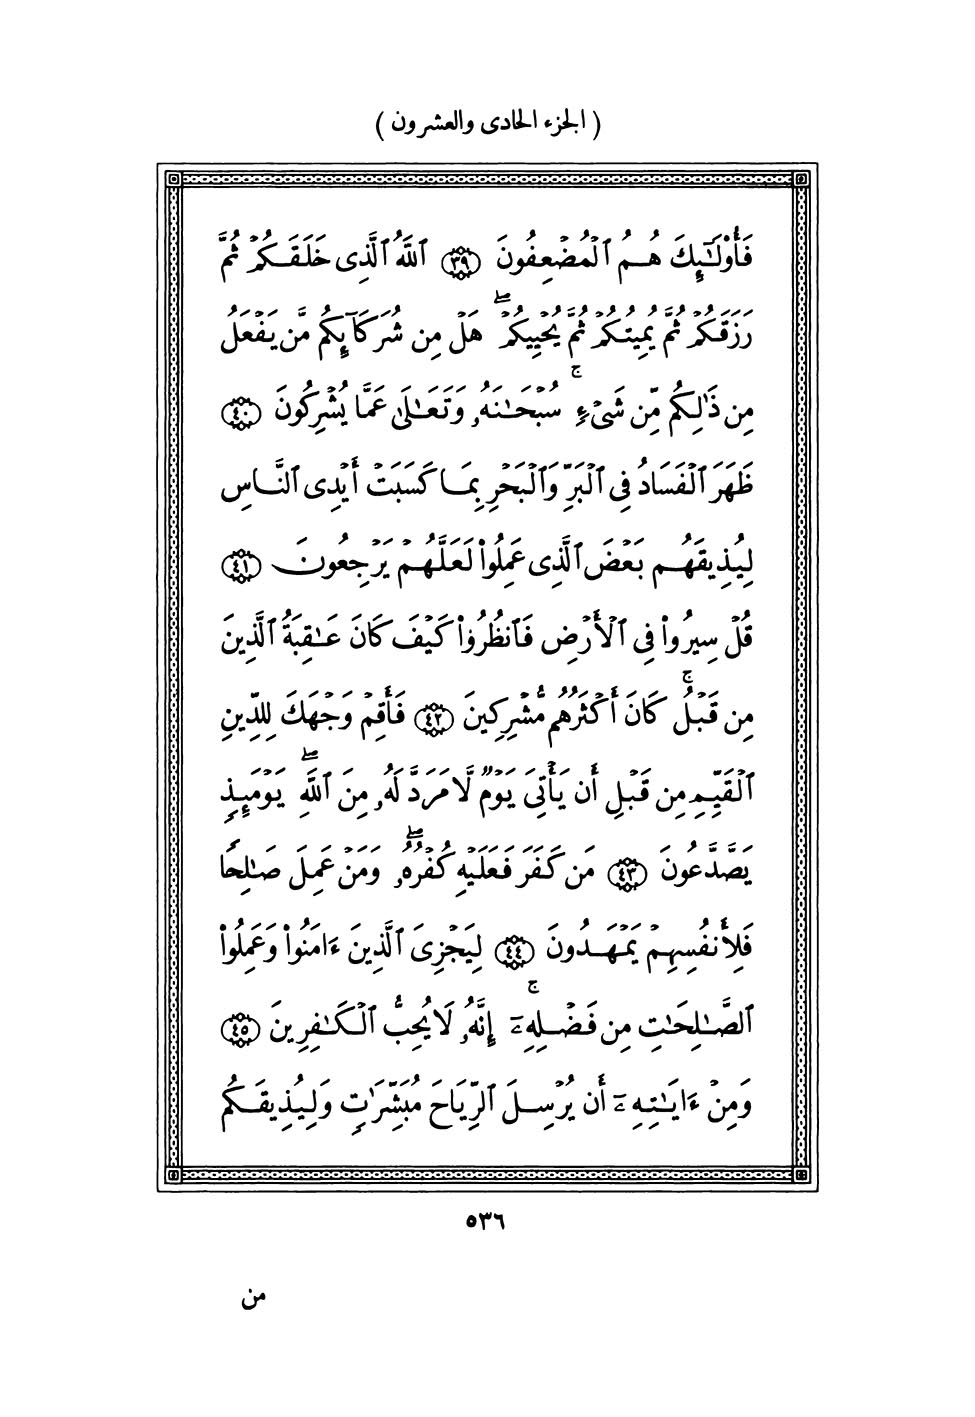 ( الجزء الحادى والعشرون )
فَأُوْلَـٰٓئِكَ هُمُ ٱلْمُضْعِفُونَ ٣٩ ٱللَّهُ ٱلَّذِى خَلَقَكُمْ ثُمَّ
رَزَقَكُمْ ثُمَّ يُمِيتُكُمْ ثُمَّ يُحْيِيكُمْ ۖ هَلْ مِن شُرَكَآئِكُم مَّن يَفْعَلُ
مِن ذَٰلِكُم مِّن شَىْءٍ ۚ سُبْحَـٰنَهُۥ وَتَعَـٰلَىٰ عَمَّا يُشْرِكُونَ ٤٠
ظَهَرَ ٱلْفَسَادُ فِى ٱلْبَرِّ وَٱلْبَحْرِ بِمَا كَسَبَتْ أَيْدِى ٱلنَّاسِ
لِيُذِيقَهُم بَعْضَ ٱلَّذِى عَمِلُوا۟ لَعَلَّهُمْ يَرْجِعُونَ ٤١
قُلْ سِيرُوا۟ فِى ٱلْأَرْضِ فَٱنظُرُوا۟ كَيْفَ كَانَ عَـٰقِبَةُ ٱلَّذِينَ
مِن قَبْلُ ۚ كَانَ أَكْثَرُهُم مُّشْرِكِينَ ٤٢ فَأَقِمْ وَجْهَكَ لِلدِّينِ
ٱلْقَيِّمِ مِن قَبْلِ أَن يَأْتِىَ يَوْمٌ لَّا مَرَدَّ لَهُۥ مِنَ ٱللَّهِ ۖ يَوْمَئِذٍ
يَصَّدَّعُونَ ٤٣ مَن كَفَرَ فَعَلَيْهِ كُفْرُهُۥ ۖ وَمَنْ عَمِلَ صَـٰلِحًا
فَلِأَنفُسِهِمْ يَمْهَدُونَ ٤٤ لِيَجْزِىَ ٱلَّذِينَ ءَامَنُوا۟ وَعَمِلُوا۟
ٱلصَّـٰلِحَـٰتِ مِن فَضْلِهِۦٓ ۚ إِنَّهُۥ لَا يُحِبُّ ٱلْكَـٰفِرِينَ ٤٥
وَمِنْ ءَايَـٰتِهِۦٓ أَن يُرْسِلَ ٱلرِّيَاحَ مُبَشِّرَٰتٍ وَلِيُذِيقَكُم
٥٣٦
من